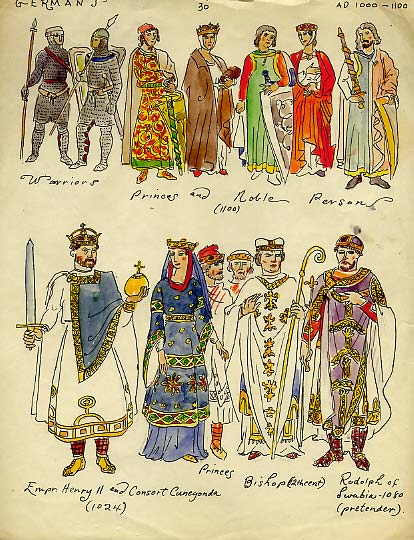 GERMANS
30
AD 1000-1100
Warriors
Princes and Noble Persons
(1100)
Princes
Bishop (12th cent)
Empr. Henry II and Consort Cunegonda
(1024)
Rudolph of
Swabia-1080
(pretender).